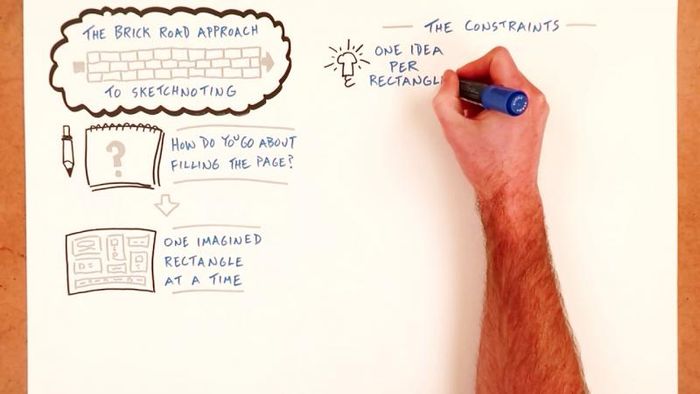 THE BRICK ROAD APPROACH
TO SKETCHNOTING
?
HOW DO YOU GO ABOUT
FILLING THE PAGE?
ONE IMAGINED
RECTANGLE
AT A TIME
THE CONSTRAINTS
ONE IDEA
PER
RECTANGL